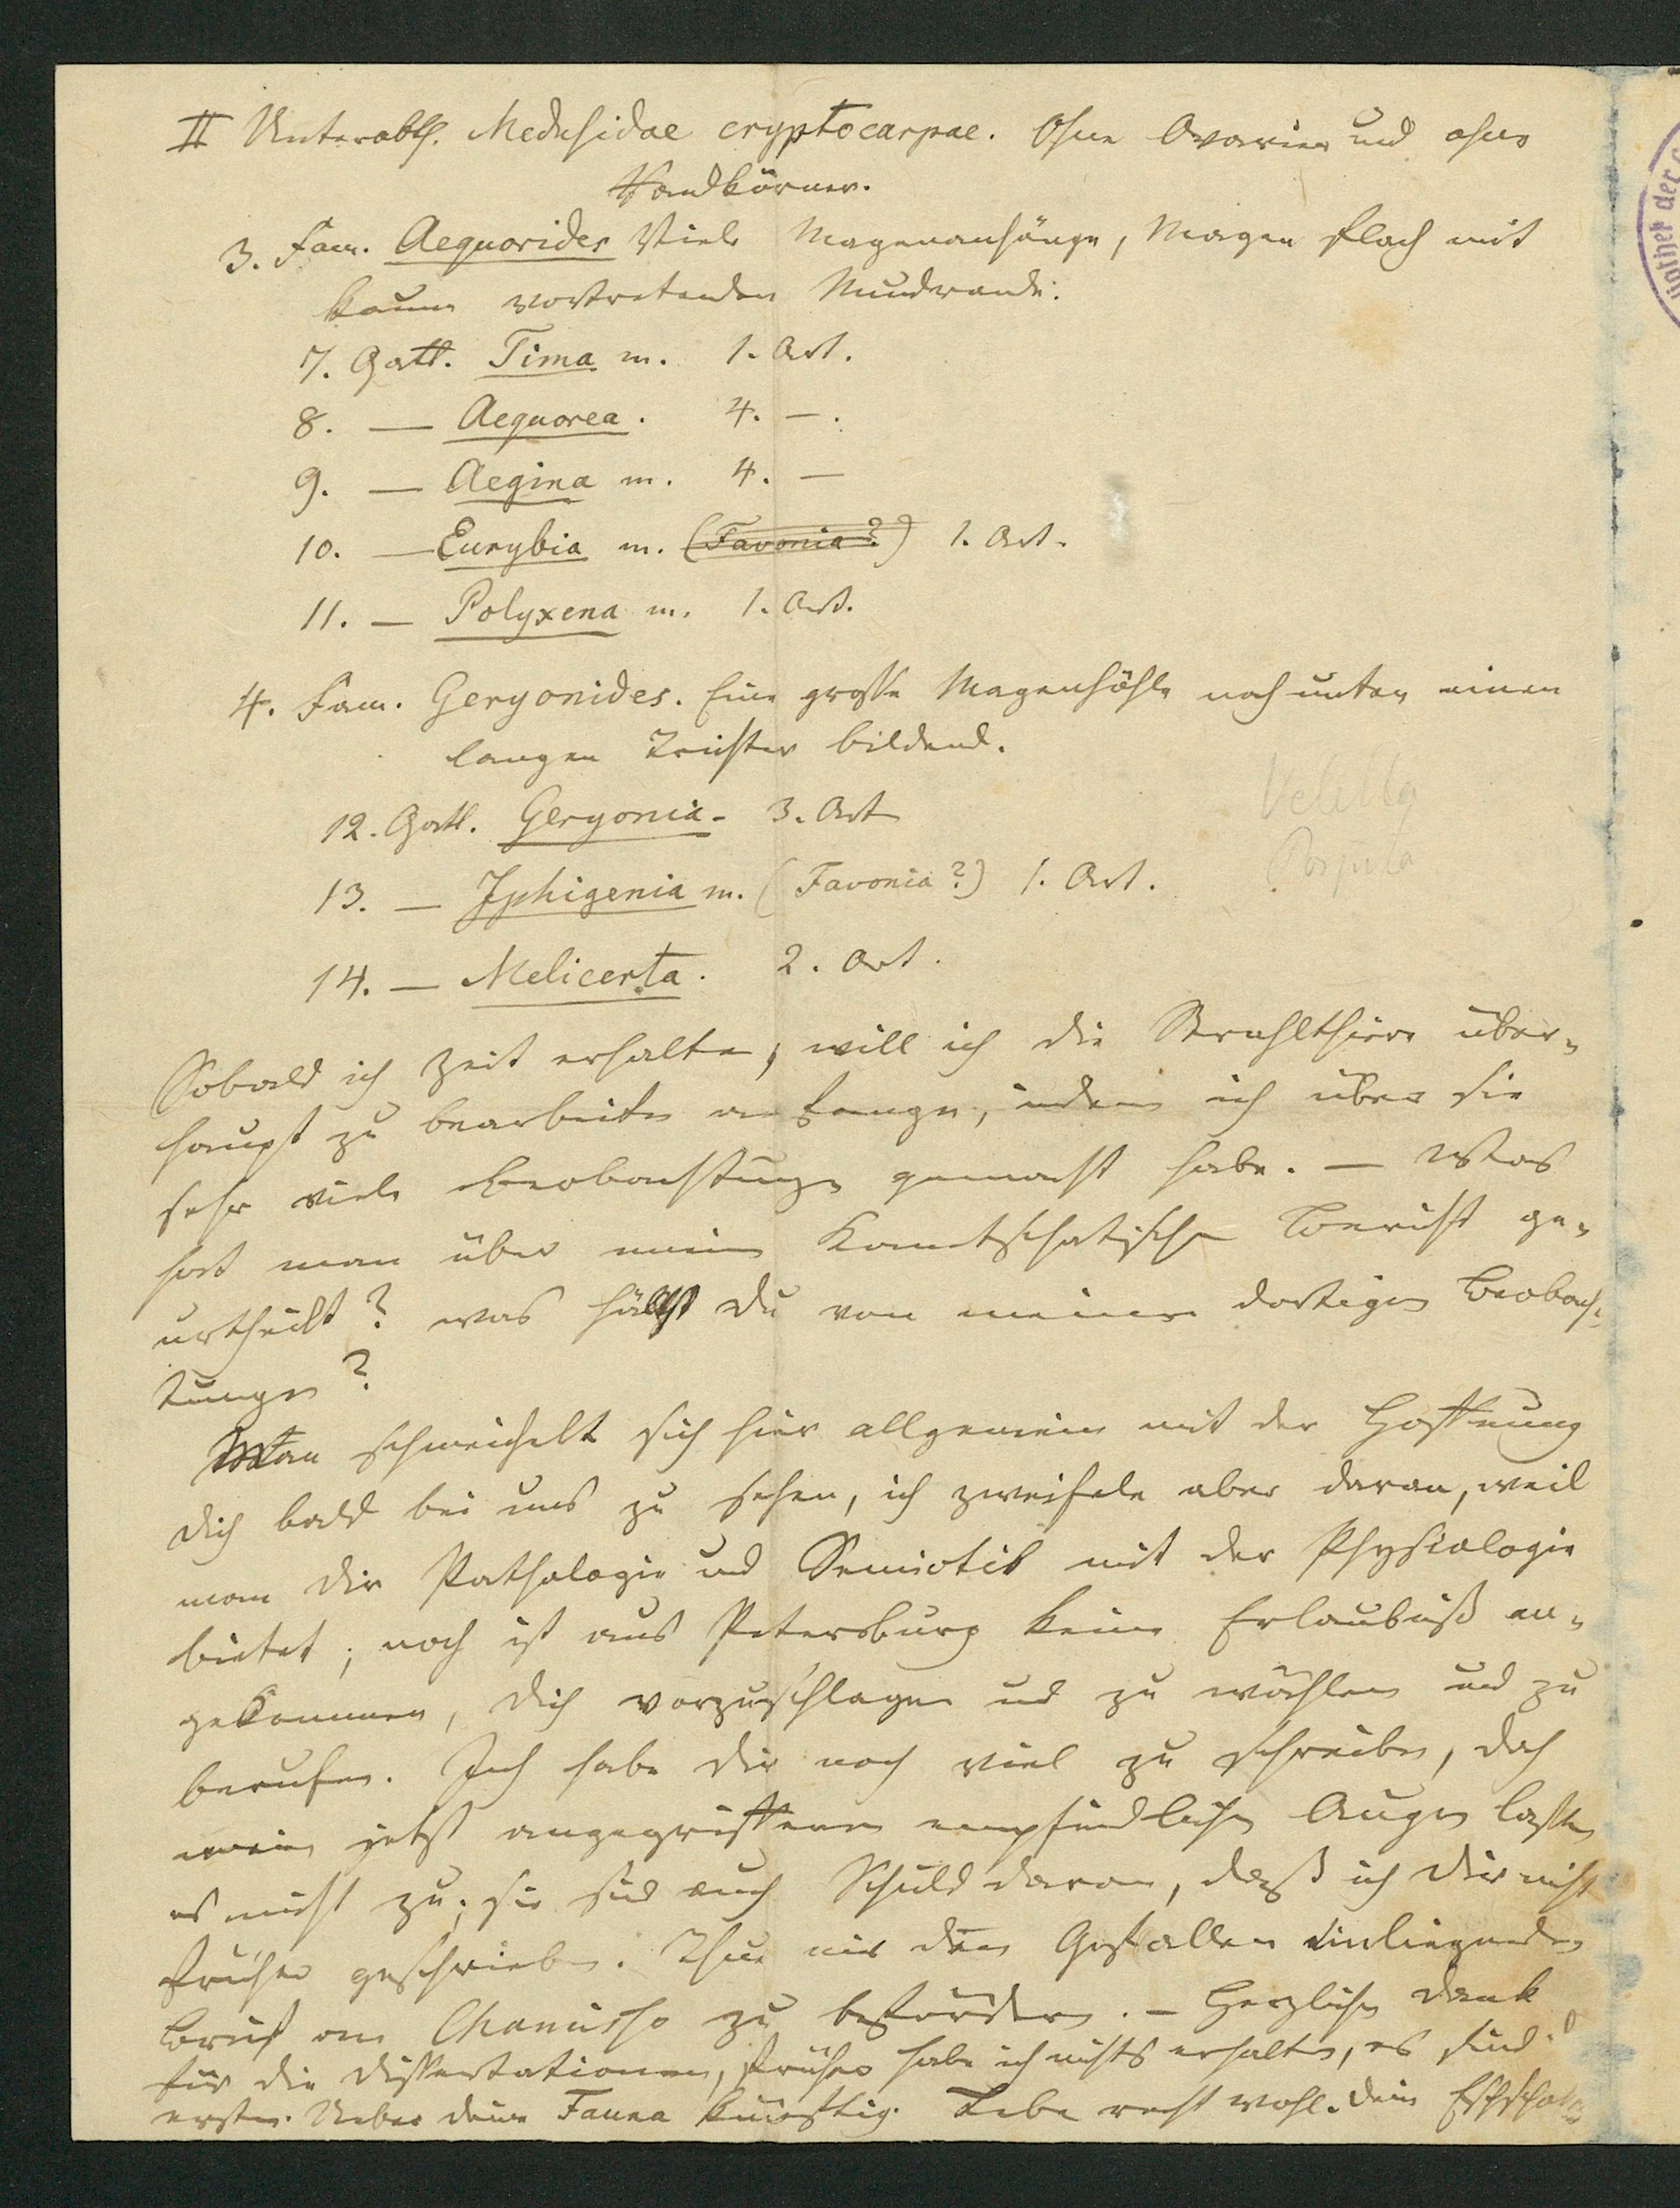 II Unterabth. Medusidae cryptocarpae. Ohne Ovarien und ohne
Randkörner.
3. Fam. Aequorides Viele Magenanhänge, Magen flach mit
kaum vortretenden Mundrande.
7. Gatt. Tima m. 1. Art.
8. — Aequorea. 4. —.
9. — Aegina m. 4. —
10. — Eurybia m. (Favonia?) 1. Art.
11. — Polyxena m. 1. Art.
4. Fam. Geryonides. Eine grosse Magenhöhle nach unten einen
langen Trichter bildend.
Velella
12. Gatt. Geryonia - 3. Art
Porpita
13. — Iphigenia m. (Favonia?) 1. Art.
14. — Melicerta. 2. Art.
Sobald ich Zeit erhalte, will ich die Strahlthiere über-
haupt zu bearbeiten anfangen, indem ich über sie
sehr viele Beobachtungen gemacht habe. — Was
hat man über meinen Kamtschatischen Bericht ge-
urtheilt? was hältst du von meinen dortigen Beobach-
tungen?
Man schmeichelt sich hier allgemein mit der Hoffnung
dich bald bei uns zu sehen, ich zweifele aber daran, weil
man dir Pathologie und Semiotik mit der Physiologie
bietet; noch ist aus Petersburg keine Erlaubniß an-
gekommen, dich vorzuschlagen und zu wählen und zu
berufen. Ich habe dir noch viel zu schreiben, doch
meine jetzt angegriffenen empfindlichen Augen lassen
es nicht zu; sie sind auch Schuld daran, daß ich dir nicht
früher geschrieben. Thue mir den Gefallen einliegenden
Brief an Chamisso zu befördern. — Herzlichen Dank
für die Dissertationen, früher habe ich nichts erhalten, es sind d.
ersten. Ueber deine Fauna künftig. Lebe recht wohl. Dein Eschscholtz